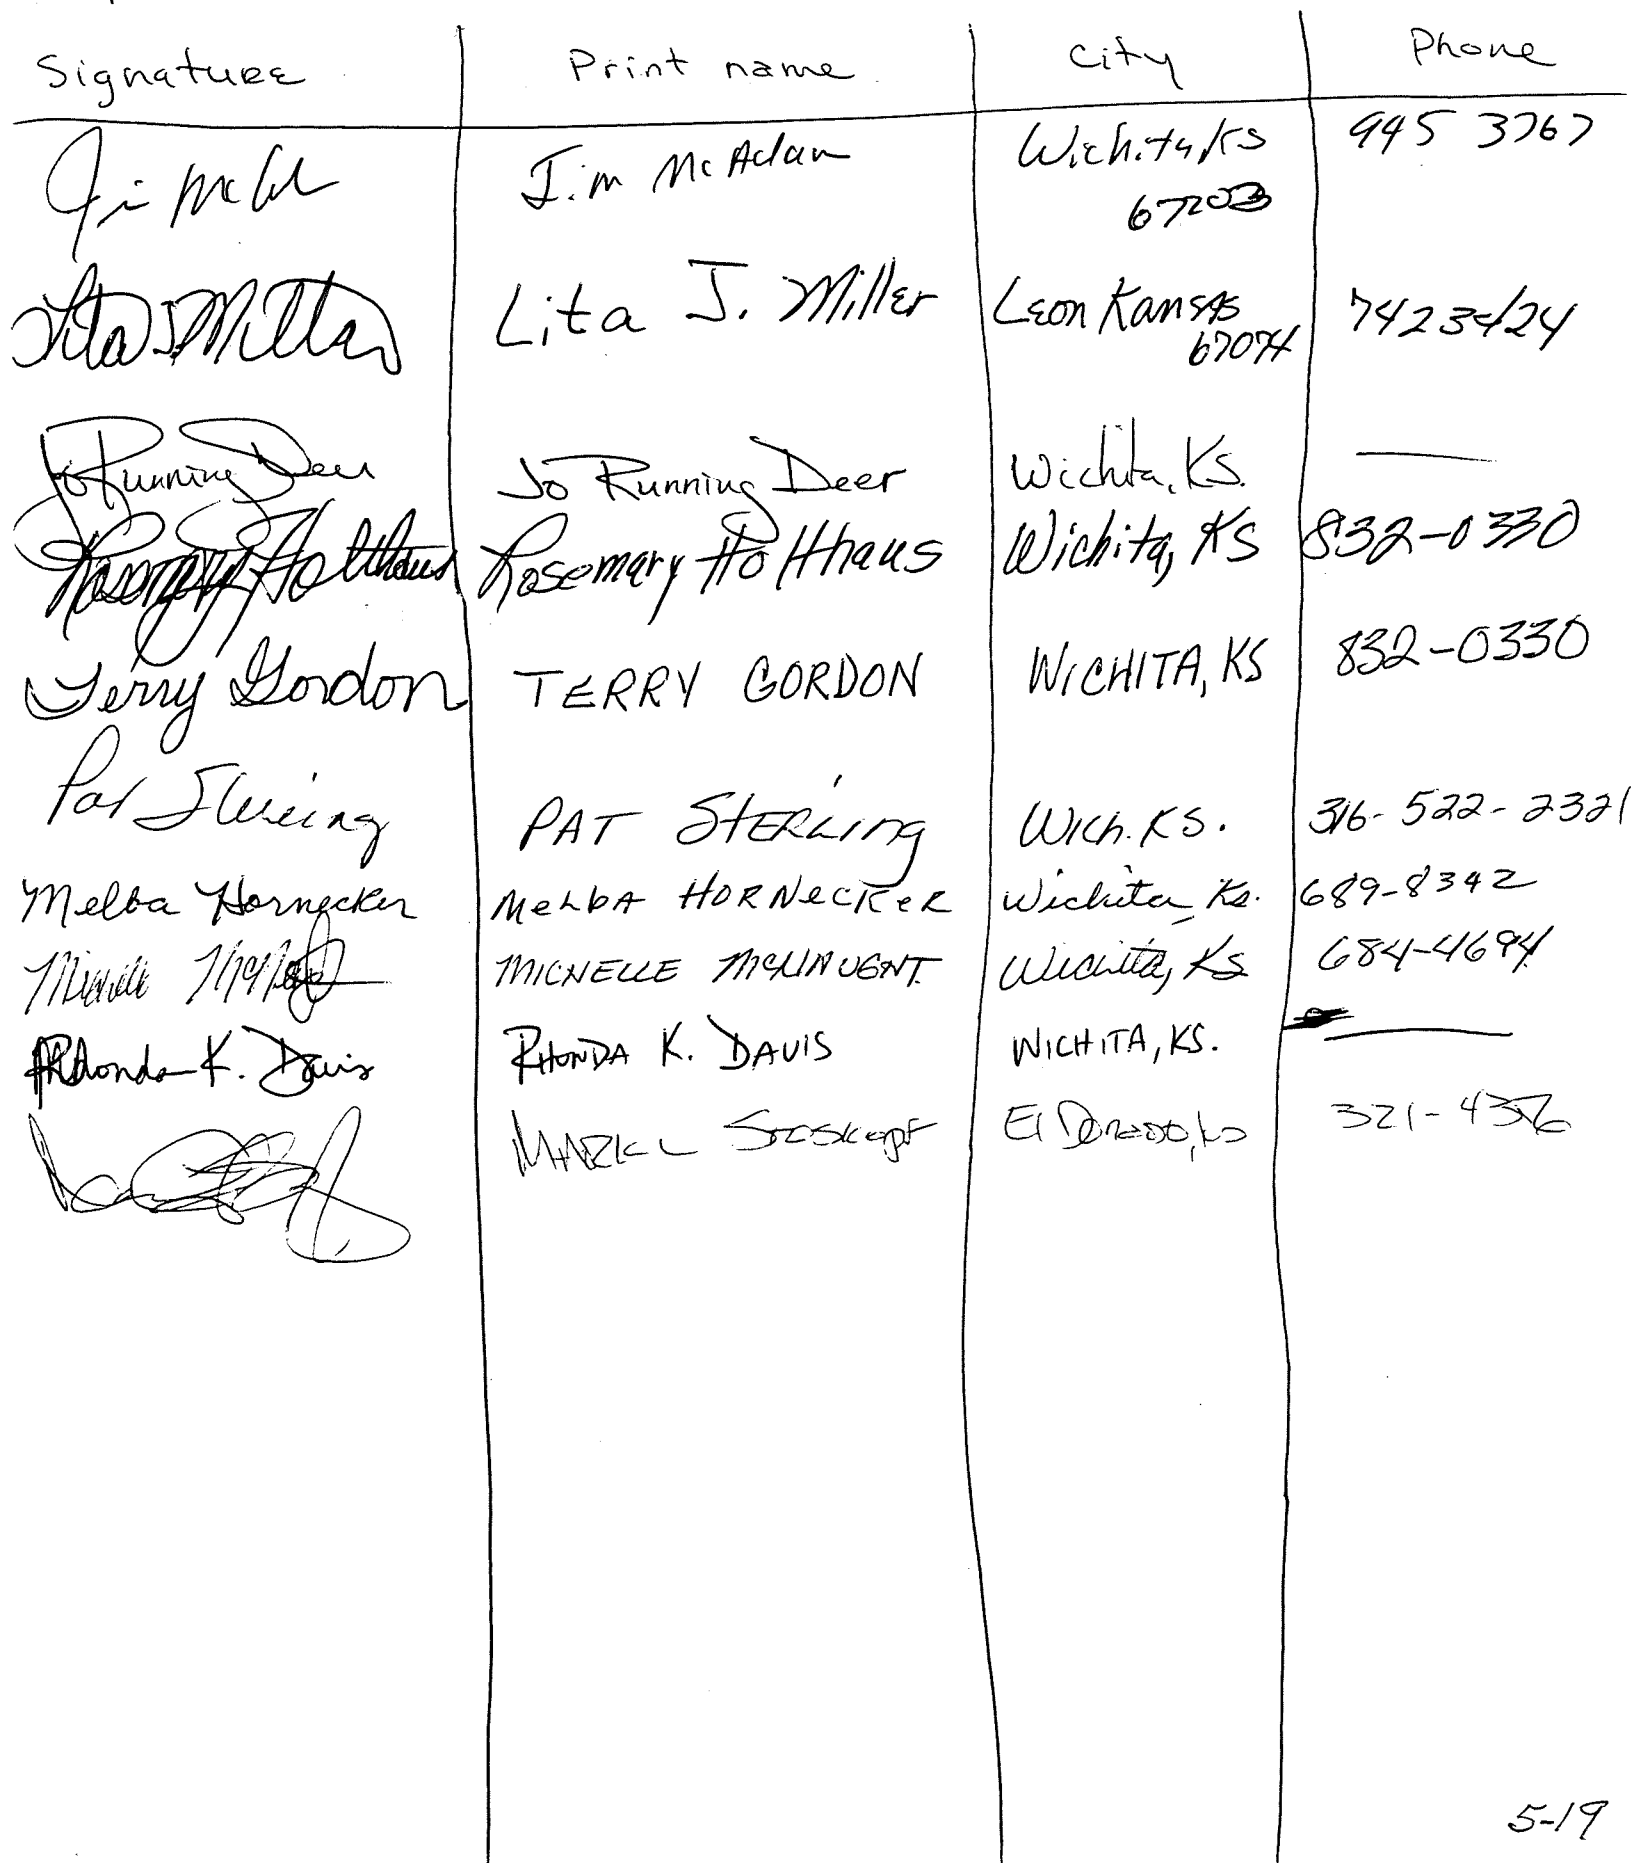 Signature Print name City Phone
Jim McAdam Wichita, KS 945 3767
67203
Lita J. Miller Lita J. Miller Leon Kansas 742 3424
67074
Jo Running Deer Jo Running Deer Wichita, KS. —
Rosemary Holthaus Rosemary Holthaus Wichita, KS 832-0330
Terry Gordon TERRY GORDON WICHITA, KS 832-0330
Pat Sterling PAT STERLing Wich. KS. 316-522-2321
Melba Hornecker MeLbA HORNeCKeR Wichita, Ks. 689-8342
Michelle MICHELLE MCNAUGHT Wichita, Ks 684-4694
Rhonda K. Davis RHONDA K. DAVIS WICHITA, KS. —
MARK L Soskopf El Dorado, ks
5-19